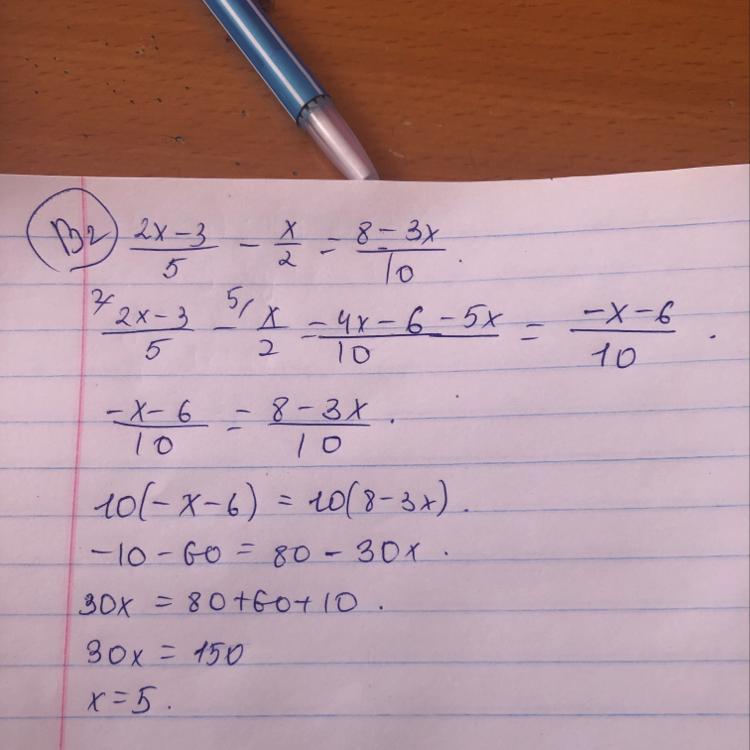 В2 (2x-3)/5 - x/2 = (8-3x)/10.
2/ (2x-3)/5 - 5/ x/2 = (4x-6-5x)/10 = (-x-6)/10.
(-x-6)/10 = (8-3x)/10.
10(-x-6) = 10(8-3x).
-10-60 = 80-30x.
30x = 80+60+10.
30x = 150
x=5.